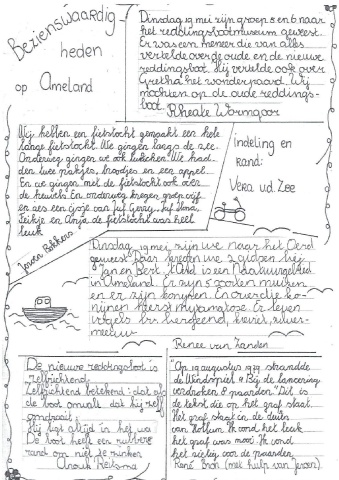 Bezienswaardig
heden
op Ameland
Dinsdag 19 mei zijn groep 5 en 6 naar
het reddingsbootmuseum geweest.
Er was een meneer die van alles
vertelde over de oude en de nieuwe
reddingsboot. Hij vertelde ook over
Gretha het wonderpaard. Wij
mochten op de oude reddings-
boot.
Rheate Wormgoor
Wij hebben een fietstocht gemaakt een hele
lange fietstocht. We gingen langs de zee.
Onderweg gingen we ook lunchen. We had-
den twee pakjes, broodjes en een appel.
En we gingen met de fietstocht ook over
de heuvels En onderweg kregen groen vijf
en zes een ijsje van juf Gerry, juf
en Anja de fietstocht was heel
leuk
Jeroen Bekkers
Indeling en
rand:
Vera v.d. Zee
Dinsdag 19 mei, zijn we naar het Oerd
geweest. Daar kregen we 2 gidsen bij
Jan en Best. 't Oerd is een Natuurgebied
in Ameland. Er zijn 5 soorten muizen
en er zijn konijnen. En over die ko-
nijnen heerst myxamatose. Er leven
vogels: Bv: bergeend, kievit, zilver-
meeuw
Renee van Zanden
De nieuwe reddingsboot is
zelfrichtend.
Zelfrichtend betekend: dat als
de boot omvalt dat hij zelf
omdraait.
Hij ligt altijd in het wa
De boot heeft een rubbere
rand om niet te zinken
Anouk Reitsma
"Op 14 augustus 1979 strandde
de Windspiel 4 Bij de lancering
verdronken 8 paarden." Dit is
de tekst die op het graf staat.
Het graf staat in de duin
van Hollum. Ik vond het leek
het graf was mooi. Ik vond
het zielig voor de paarden.
René Bron (met hulp van Jeroen)